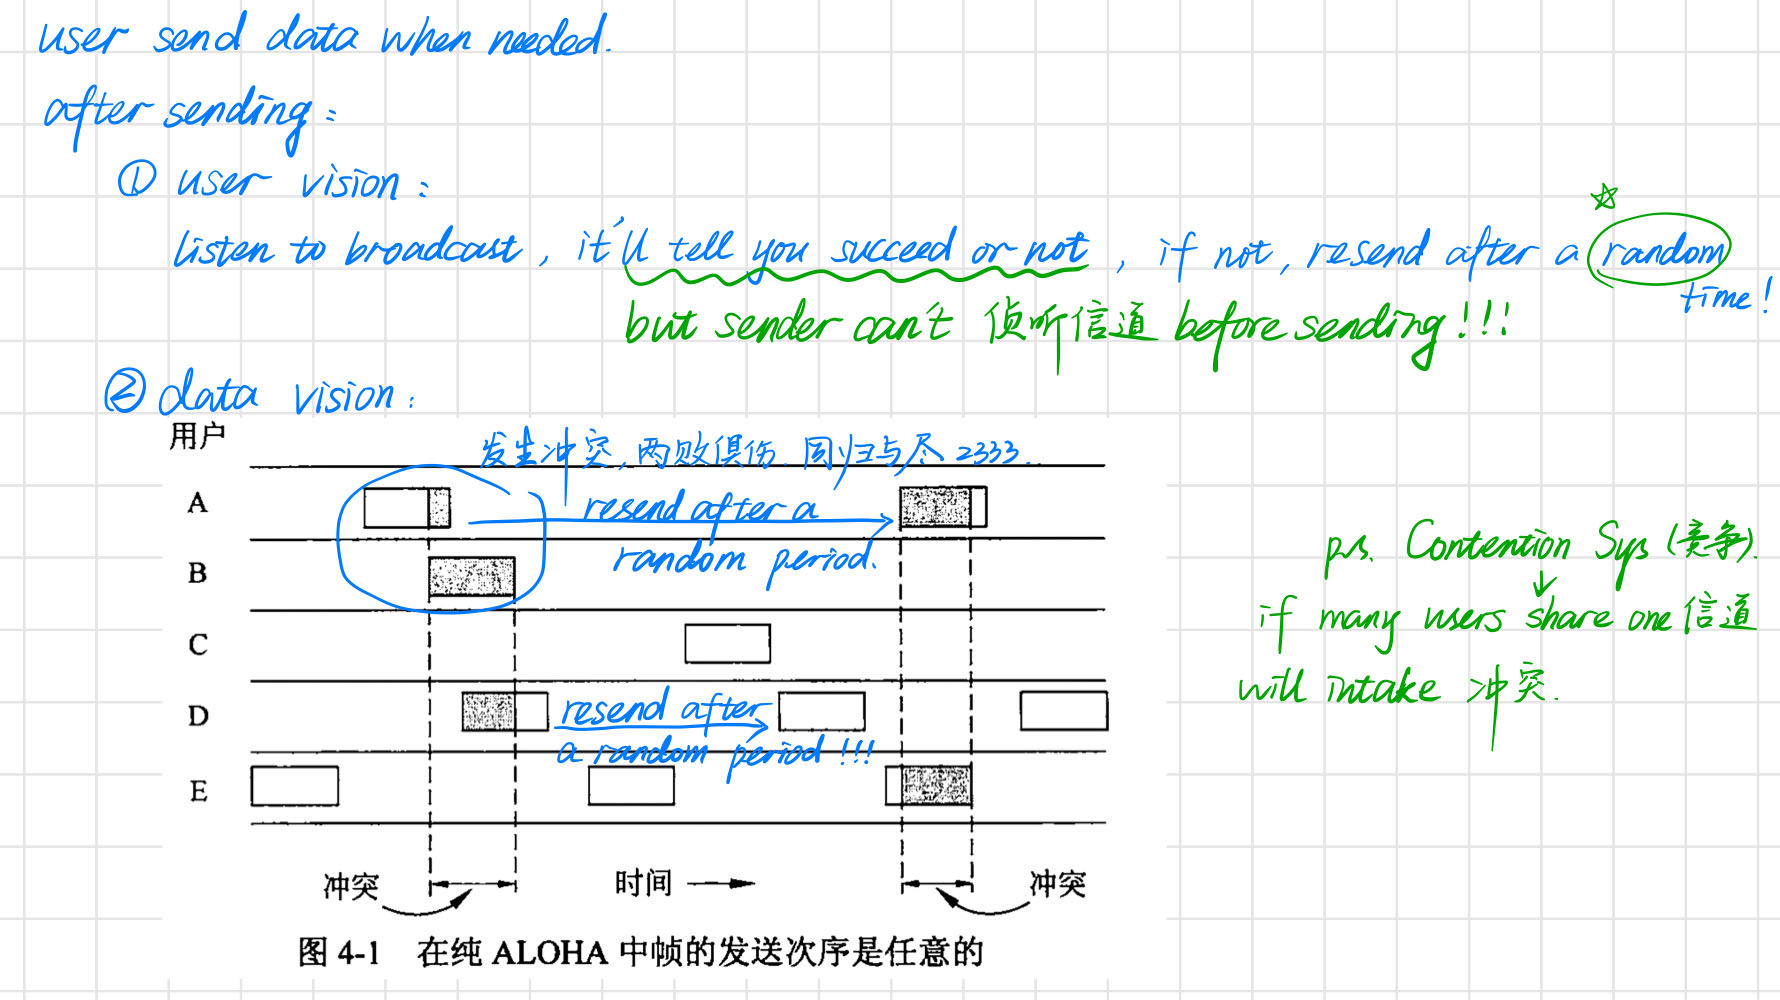 user send data when needed.
after sending:
① user vision:
listen to broadcast, it'll tell you succeed or not, if not, resend after a random
time!
but sender can't 侦听信道 before sending!!!
② data vision:
用户
发生冲突,两败俱伤.同归与尽2333..
A
resend after a
random period.
B
C
D
resend after
a random period!!!
E
冲突
时间
冲突
图 4-1 在纯 ALOHA 中帧的发送次序是任意的
p.s. Contention Sys (竞争).
if many users share one 信道
will intake 冲突.